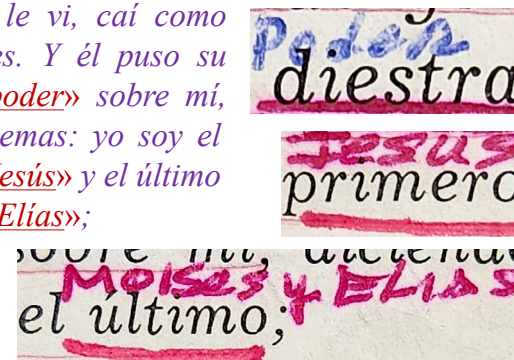 le vi, caí como
es. Y él puso su
poder» sobre mí,
emas: yo soy el
esús» y el último
Elías»;
Poder
diestra
Jesus
primero
MOISES y ELIAS
el último;